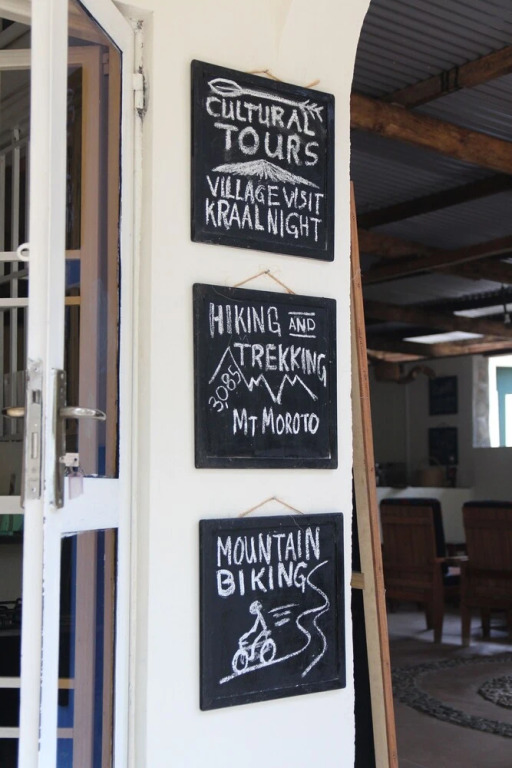 CULTURAL
TOURS
VILLAGE VISIT
KRAAL NIGHT
HIKING AND
TREKKING
3,085
MT MOROTO
MOUNTAIN
BIKING